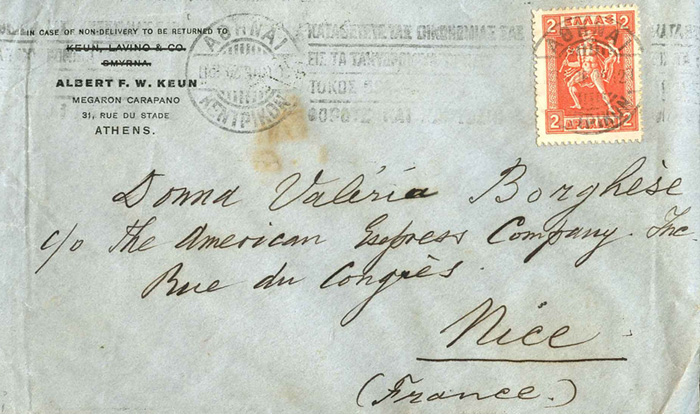 IN CASE OF NON-DELIVERY TO BE RETURNED TO
KEUN, LAVINO & CO.
SMYRNA.
ALBERT F. W. KEUN
MEGARON CARAPANO
31, RUE DU STADE
ATHENS.
ΑΘΗΝΑΙ
ΚΕΝΤΡΙΚΟΝ
ΚΑΤΑΘΕΤΕΤΕ ΤΑΣ ΟΙΚΟΝΟΜΙΑΣ ΣΑΣ
ΕΙΣ ΤΑ
ΤΟΚΟΣ
2 ΕΛΛΑΣ 2
ΑΘΗΝΑΙ
2 2
Donna Valéria Borghèse
c/o The American Express Company. Inc
Rue du Congrès.
Nice
(France.)